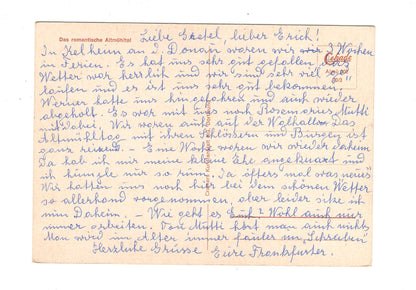 Das romantische Altmühltal
Liebe Gretel, lieber Erich!
In Kelheim an d. Donau waren wir 3 Wochen
in Ferien. Es hat uns sehr gut gefallen, das
Wetter war herrlich und wir sind sehr viel ge-
laufen und es ist uns sehr gut bekommen.
Werner hatte uns hin gefahren und auch wieder
abgeholt. Es war mit uns noch Rosemaries Mutti
mit dabei. Wir waren auch auf der Walhalla. Das
Altmühltag mit ihren Schlössern und Burgen ist
ganz reizend. - Eine Woche waren wir wieder daheim
Da hab ich mir meine kleine Ehe angeknaxt und
ich humple nur so rum. Ja öfters mal was neues"
Wir hatten uns noch hier bei dem schönen Wetter
so allerhand vorgenommen, aber leider sitze ich
nun Daheim. - Wie geht es Euch? Wohl auch nur
immer arbeiten. Von Mutti hört man auch nichts
Man wird im Alter immer fauler im "Schreiben"
Herzliche Grüsse Eure Frankfurter.